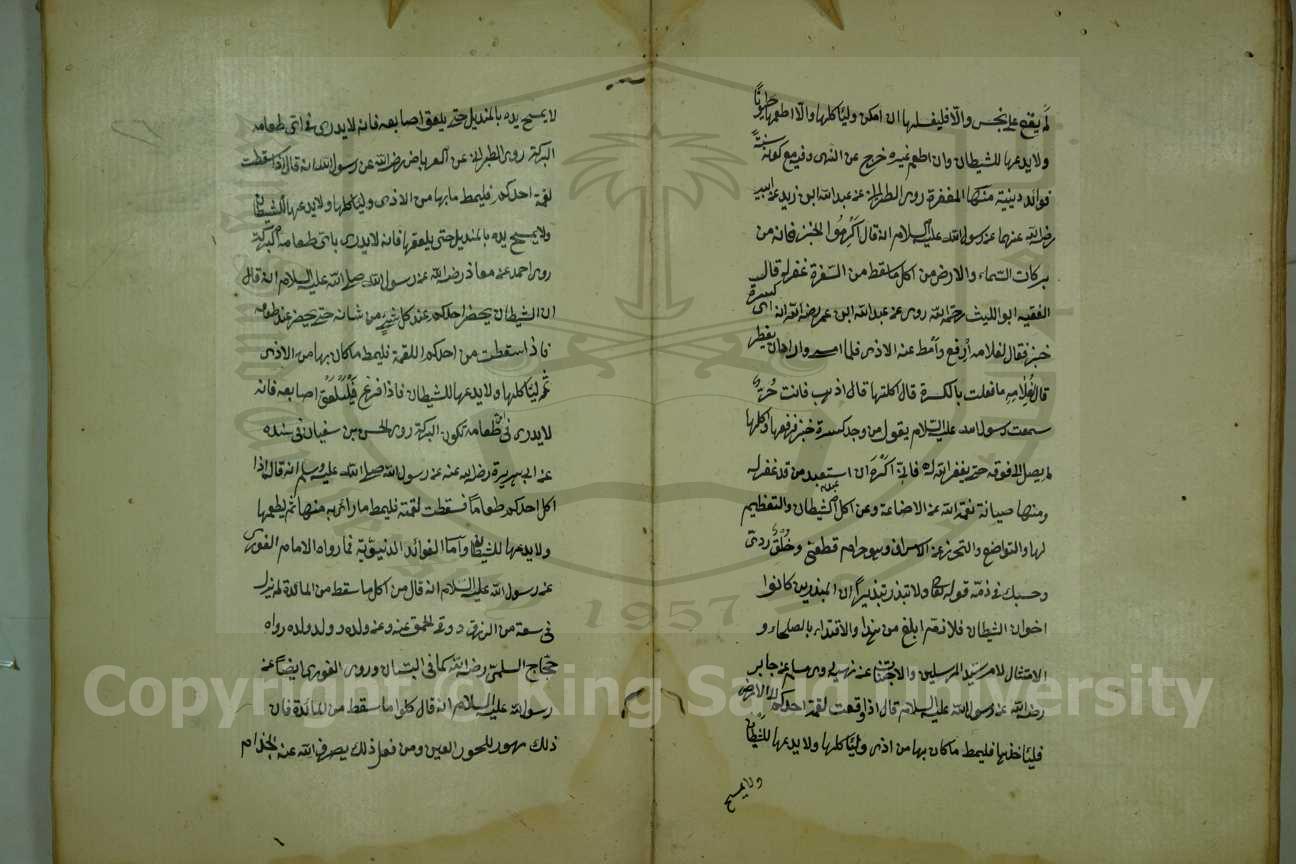 لم يقع على نجس والا فليغسلها ان امكن وليأكلها والا اطعمها حيوانًا
ولا يدعها للشيطان وان اطعم غيره خرج عن النهى وفيه مع كونه سنةً
فوائد دينية منها المغفرة روى الطبرانى عن عبد الله ابن زيد عن ابيه
رضى الله عنهما عن رسول الله عليه السلام انه قال أكرموا الخبز فانه من
بركات السماء والارض من اكل ما سقط من السفرة غفر له قال
الفقيه ابو الليث رحمة الله روى عن عبد الله ابن عمر رضى الله انه رأى كسرة
خبز فقال لغلامه أرفع وأمط عنه الاذى فلما امسى واراد ان يفطر
قال لغلامه ما فعلت بالكسرة قال اكلتها قال اذهب فانت حرٌّ
سمعت رسول الله عليه السلام يقول من وجد كسرة خبز فرفعها واكلها
لم يصل الى فوقه حتى يغفر الله له فانى اكره ان استعبد من قد غفر له
ومنها صيانة نعمة الله عن الاضاعة وعن اكل الشيطان والتعظيم
لها والتواضع والتحرز عن الاسراف وهو حرام قطعىّ وخُلُق ردىّ
وحسبك فى ذمه قوله تعالى ولا تبذر تبذيرًا ان المبذرين كانوا
اخوان الشيطان فلا نعم ابلغ من هذا والاقتداء بالصلحاء و
الامتثال لامر سيد المرسلين والاجتناب عن نهيه روى مسلم عن جابر
رضى الله عن رسول الله عليه السلام قال اذا وقعت لقمة احدكم الى الارض
فليأخذها فليمط ما كان بها من اذى وليأكلها ولا يدعها للشيطان
ولا يمسح
لا يمسح يده بالمنديل حتى يلعق اصابعه فانه لا يدرى فى اى طعامه
البركة روى الطبرانى عن العرباض رضى الله عن رسول الله انه قال اذا سقطت
لقمة احدكم فليمط ما بها من الاذى وليأكلها ولا يدعها للشيطان
ولا يمسح يده بالمنديل حتى يلعقها فانه لا يدرى باى طعامه البركة
روى احمد عن معاذ رضى الله عن رسول الله صلى الله عليه السلام انه قال
ان الشيطان يحضر احدكم عند كل شىء من شانه حتى يحضر عند طعامه
فاذا سقطت من احدكم اللقمة فليمط ما كان بها من الاذى
ثم ليأكلها ولا يدعها للشيطان فاذا فرغ فليلعق اصابعه فانه
لا يدرى فى اى طعامه تكون البركة روى الحسن بن سفيان فى سنده
عن ابى هريرة رضى الله عنه عن رسول الله صلى الله عليه وسلم انه قال اذا
اكل احدكم طعاما فسقطت لقمته فليمط ما رابه منها ثم ليطعمها
ولا يدعها للشيطان وأما الفوائد الدنيوية فما رواه الامام الغورى
عن رسول الله عليه السلام انه قال من اكل ما سقط من المائدة لم يزل
فى سعة من الرزق ووقى الحمق عنه وعن ولده وولد ولده رواه
حجاج السلمى رضى الله كما فى البستان وروى الغورى ايضًا عن
رسول الله عليه السلام انه قال كلوا ما سقط من المائدة فان
ذلك مهور للحور العين ومن فعل ذلك يصرف الله عنه الجذام
1957
Copyright (C) King Saud University